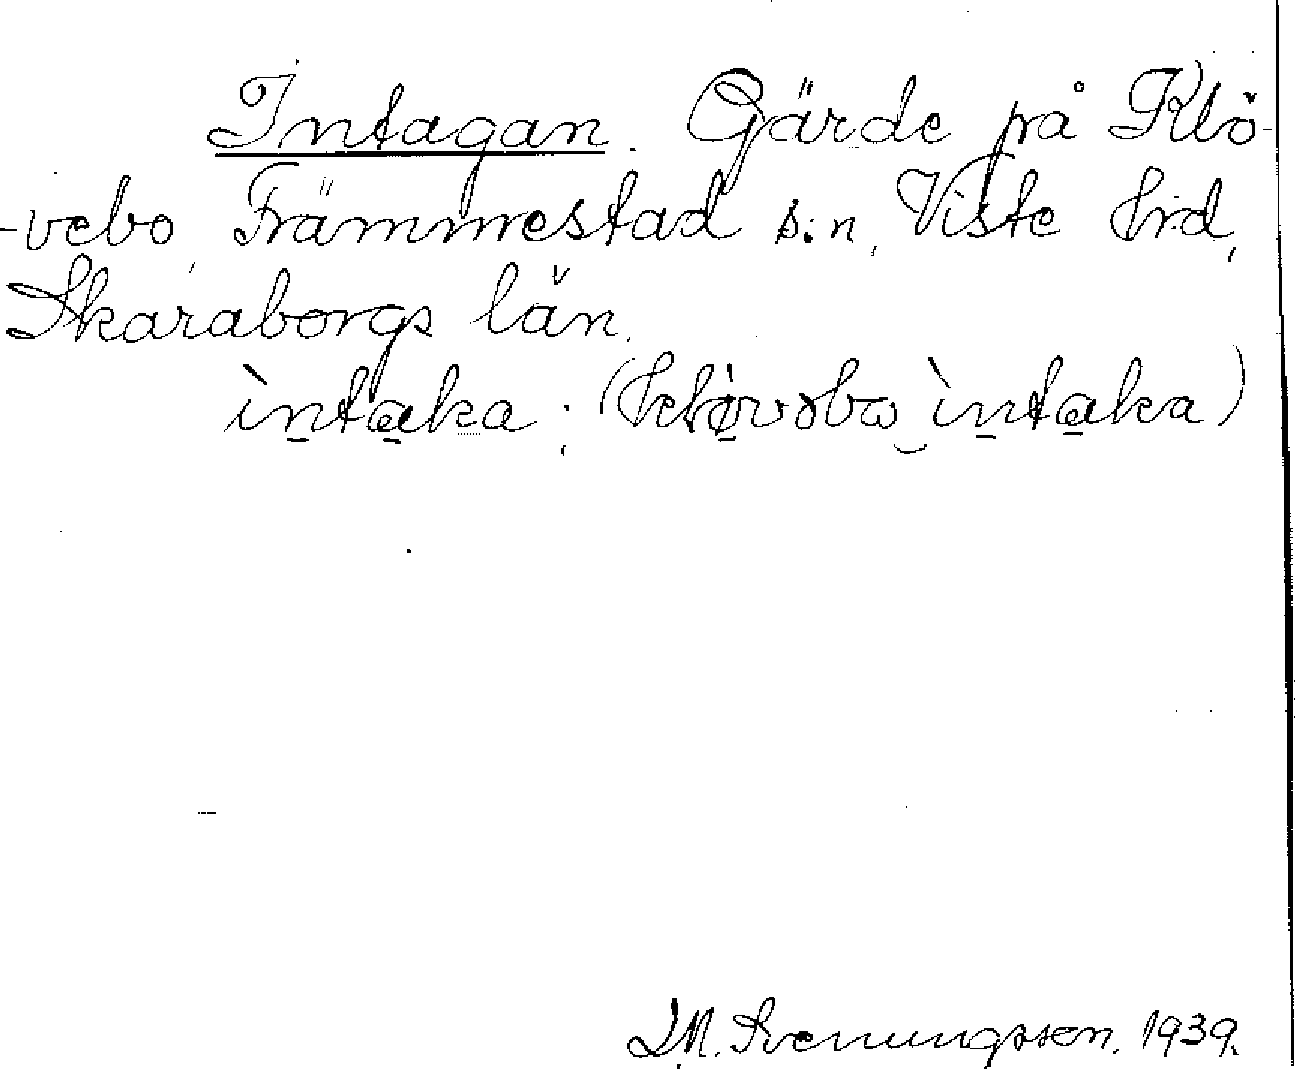 Intagan. Gärde på Klö-
-vebo, Främmestad s:n, Viste hrd,
Skaraborgs län.
ìntaka; (kløvəbo ìntaka)
Svenungsson. 1939.